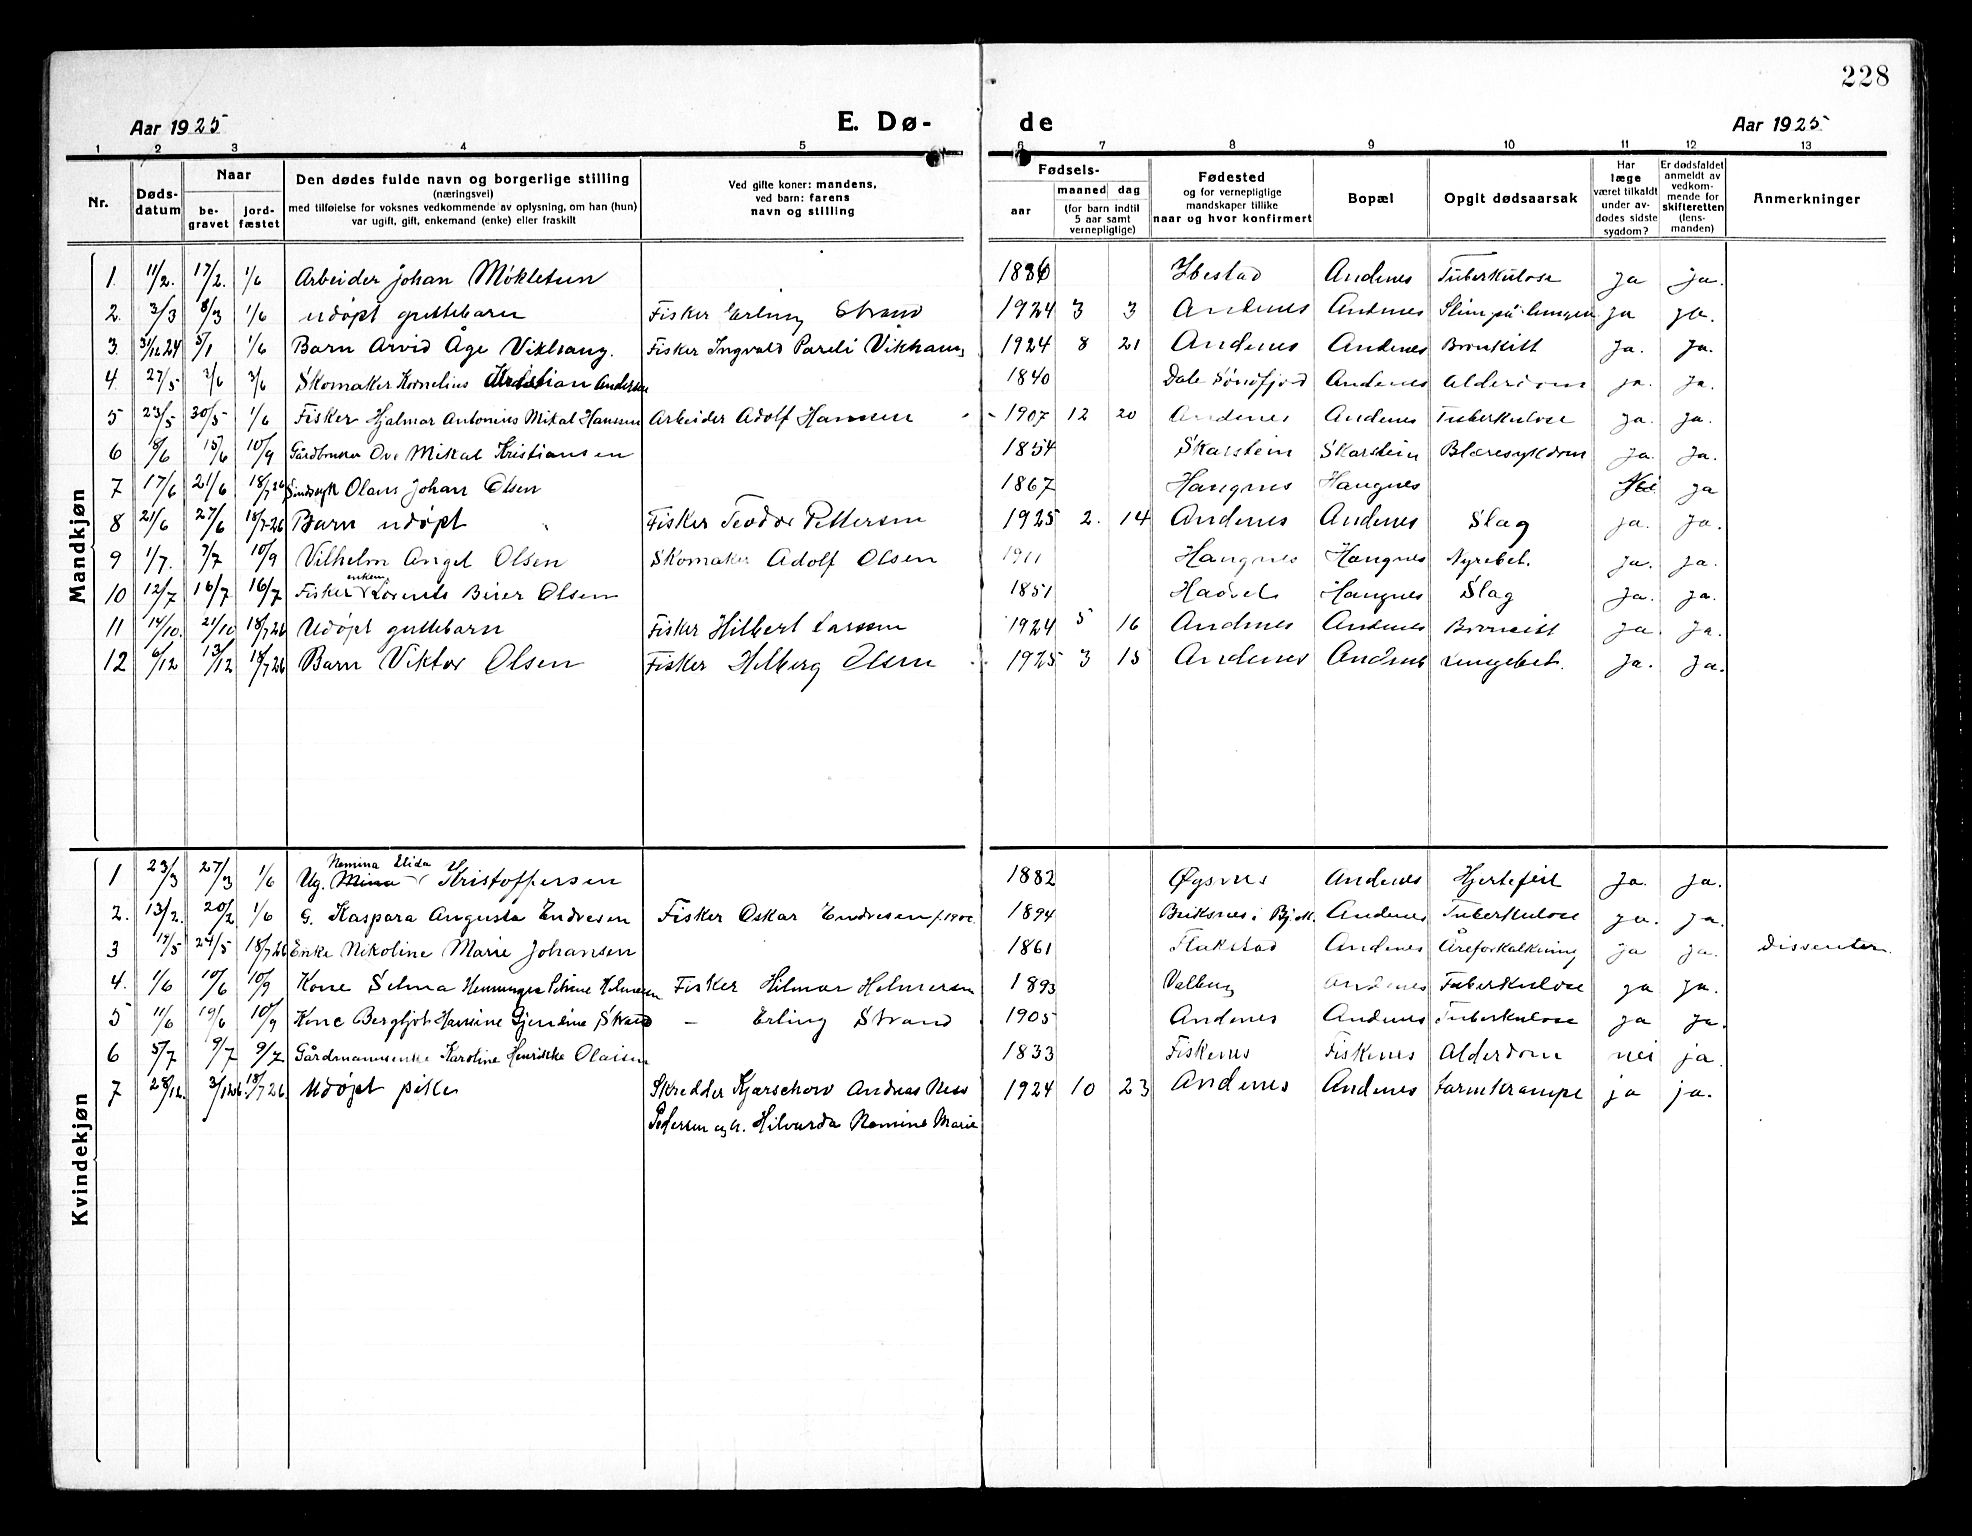 228
Aar 1925
E. Dø-
de
Aar 1925
1 2 3 4 5 6 7 8 9 10 11 12 13
Nr.
Døds-
datum
Naar
be-
gravet
jord-
fæstet
Den dødes fulde navn og borgerlige stilling
(næringsvei)
med tilføielse for voksnes vedkommende av oplysning, om han (hun)
var ugift, gift, enkemand (enke) eller fraskilt
Ved gifte koner: mandens,
ved barn: farens
navn og stilling
Fødsels-
aar
maaned
dag
(for barn indtil
5 aar samt
vernepligtige)
Fødested
og for vernepligtige
mandskaper tillike
naar og hvor konfirmert
Bopæl
Opgit dødsaarsak
Har
læge
været tilkaldt
under av-
dødes sidste
sygdom?
Er dødsfaldet
anmeldt av
vedkom-
mende for
skifteretten
(lens-
manden)
Anmerkninger
Mandkjøn
1. 11/2. 17/2. 1/6 Arbeider Johan Møkletun 1886 Ibestad Andenes Tuberkulose Ja Ja.
2. 3/3 8/3 1/6 udøpt guttebarn Fisker Erling Strand 1924 3 3 Andenes Andenes Slim på lungen ja ja.
3. 31/12 24 5/1 1/6 Barn Arvid Åge Vikhang. Fisker Ingvald Pareli Vikhang 1924 8 21 Andenes Andenes Bronkitt Ja. Ja.
4. 27/5 3/6 3/6 Skomaker Kornelius Kristian Andersen 1840 Dale Søndfjord Andenes Alderdom ja. ja.
5 23/5 30/5 1/6 Fisker Hjalmar Antonius Mikal Hanssen Arbeider Adolf Hansen 1907 12 20 Andenes Andenes Tuberkulose Ja. Ja.
6 8/6 15/6 10/9 Gårdbruker Ove Mikal Kristiansen 1854 Skarstein Skarstein Blæresykdom Ja. Ja.
7 17/6 21/6 18/7 26 Sindssyk Olaus Johan Olsen 1867 Haugnes Haugnes Nei ja
8 21/6 27/6 18/7 26 Barn udøpt Fisker Teodor Pettersen 1925 2. 14 Andenes Andenes Slag ja. Ja.
9 1/7. 7/7 10/9 Vilhelm Angel Olsen Skomaker Adolf Olsen 1911 Haugnes Haugnes Nyrebet. Ja. Ja.
enkem.
10 12/7 16/7 16/7 Fisker Lorents Birer Olsen 1851 Haugnes Slag Ja. Ja.
11 14/10. 21/10 18/7 26 Udøpt guttebarn Fisker Hilbert Larssen 1924 5 16 Andenes Andenes Bronkitt Ja. Ja.
12 6/12 13/12 18/7 26 Barn Viktor Olsen Fisker Hilberg Olsen 1925 3 15 Andenes Andenes Lungebet. Ja. Ja.
Kvindekjøn
Nemina Elida
1 23/3 27/3 1/6 Ug. Mina Kristoffersen 1882 Øgsnes Andenes Hjertefeil Ja. Ja.
2. 13/2. 20/2 1/6 G. Kaspara Augusta Endresen Fisker Oskar Endresen 1894 Andenes Tuberkulose ja. Ja.
3 19/5 24/5 18/7 26 Enke Nikoline Marie Johansen 1861 Flakstad Andenes Åreforkalkning ja ja. Dissenter
4. 1/6 10/6 10/9 Kone Selma Petrine Helmersen Fisker Hilmar Helmersen 1893 Andenes Tuberkulose ja ja.
5 11/6 19/6 10/9 Kone Bergljot Hansine Strand - Erling Strand 1905 Andenes Andenes Tuberkulose ja Ja.
6 5/7 9/7 9/7 Gårdmannsenke Karoline Henrikke Olaisen 1833 Fiskenes Fiskenes Alderdom nei ja.
7 28/12. 3/1 26. 18/7 26 Udøpt pike Skredder Kjærschow Andreas Ness 1924 10 23 Andenes Andenes Tarmkrampe ja ja.
Pedersen og h. Hilvarda Nemine Marie